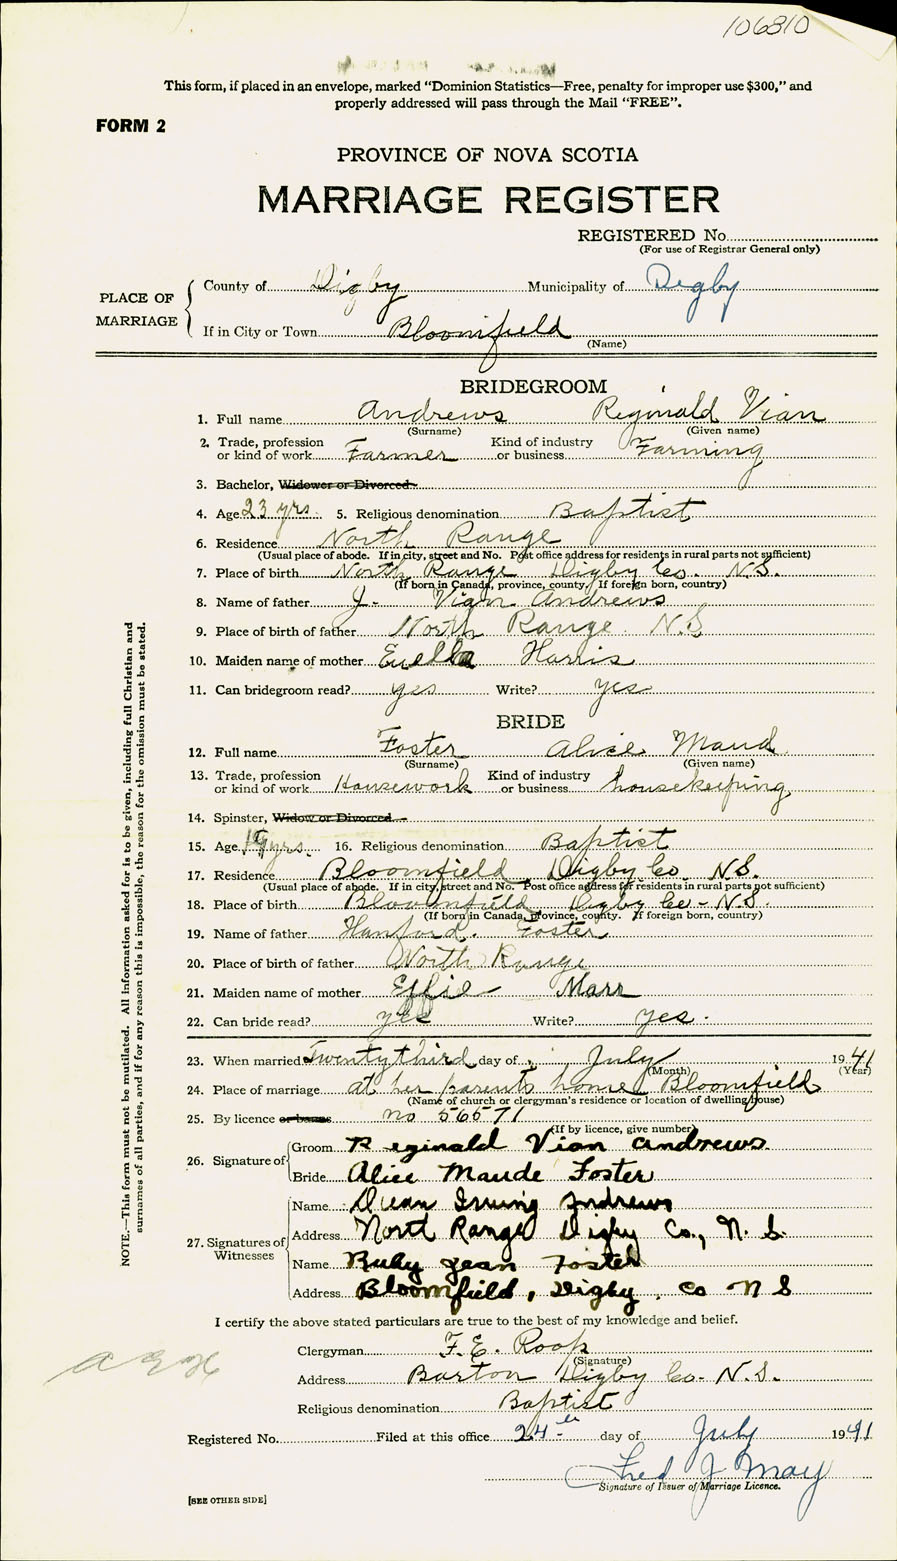 106810
This form, if placed in an envelope, marked “Dominion Statistics—Free, penalty for improper use $300,” and
properly addressed will pass through the Mail “FREE”.
FORM 2
PROVINCE OF NOVA SCOTIA
MARRIAGE REGISTER
REGISTERED No.
(For use of Registrar General only)
PLACE OF MARRIAGE
County of Digby Municipality of Digby
If in City or Town Bloomfield
(Name)
BRIDEGROOM
1. Full name Andrews Reginald Vian
(Surname) (Given name)
2. Trade, profession or kind of work Farmer Kind of industry or business Farming
3. Bachelor, Widower or Divorced
4. Age 23 yrs. 5. Religious denomination Baptist
6. Residence North Range
(Usual place of abode. If in city, street and No. Post office address for residents in rural parts not sufficient)
7. Place of birth North Range Digby Co. N.S.
(If born in Canada, province, county. If foreign born, country)
8. Name of father J. Vian Andrews
9. Place of birth of father North Range N.S.
10. Maiden name of mother Harris
11. Can bridegroom read? yes Write? yes
BRIDE
12. Full name Foster Alice Maud
(Surname) (Given name)
13. Trade, profession or kind of work Housework Kind of industry or business housekeeping
14. Spinster, Widow or Divorced
15. Age 19 yrs. 16. Religious denomination Baptist
17. Residence Bloomfield Digby Co. N.S.
(Usual place of abode. If in city, street and No. Post office address for residents in rural parts not sufficient)
18. Place of birth Bloomfield Digby Co - N.S.
(If born in Canada, province, county. If foreign born, country)
19. Name of father Hanford. Foster
20. Place of birth of father North Range
21. Maiden name of mother Effie Marr
22. Can bride read? yes Write? yes.
23. When married Twenty third day of July 1941
(Month) (Year)
24. Place of marriage at her parents home Bloomfield
(Name of church or clergyman’s residence or location of dwelling house)
25. By licence or banns no 56571
(If by licence, give number)
26. Signature of
Groom Reginald Vian Andrews.
Bride Alice Maude Foster
27. Signatures of Witnesses
Name Irving Andrews
Address North Range Digby Co., N. S.
Name Ruby Jean Foster
Address Bloomfield, Digby. Co N S
I certify the above stated particulars are true to the best of my knowledge and belief.
Clergyman F. E. Roop
(Signature)
Address Barton Digby Co- N.S.
Religious denomination Baptist
Registered No. Filed at this office 24th day of July 1941
Fred J May
Signature of Issuer of Marriage Licence.
[SEE OTHER SIDE]
NOTE.—This form must not be mutilated. All information asked for is to be given, including full Christian and
surnames of all parties, and if for any reason this is impossible, the reason for the omission must be stated.